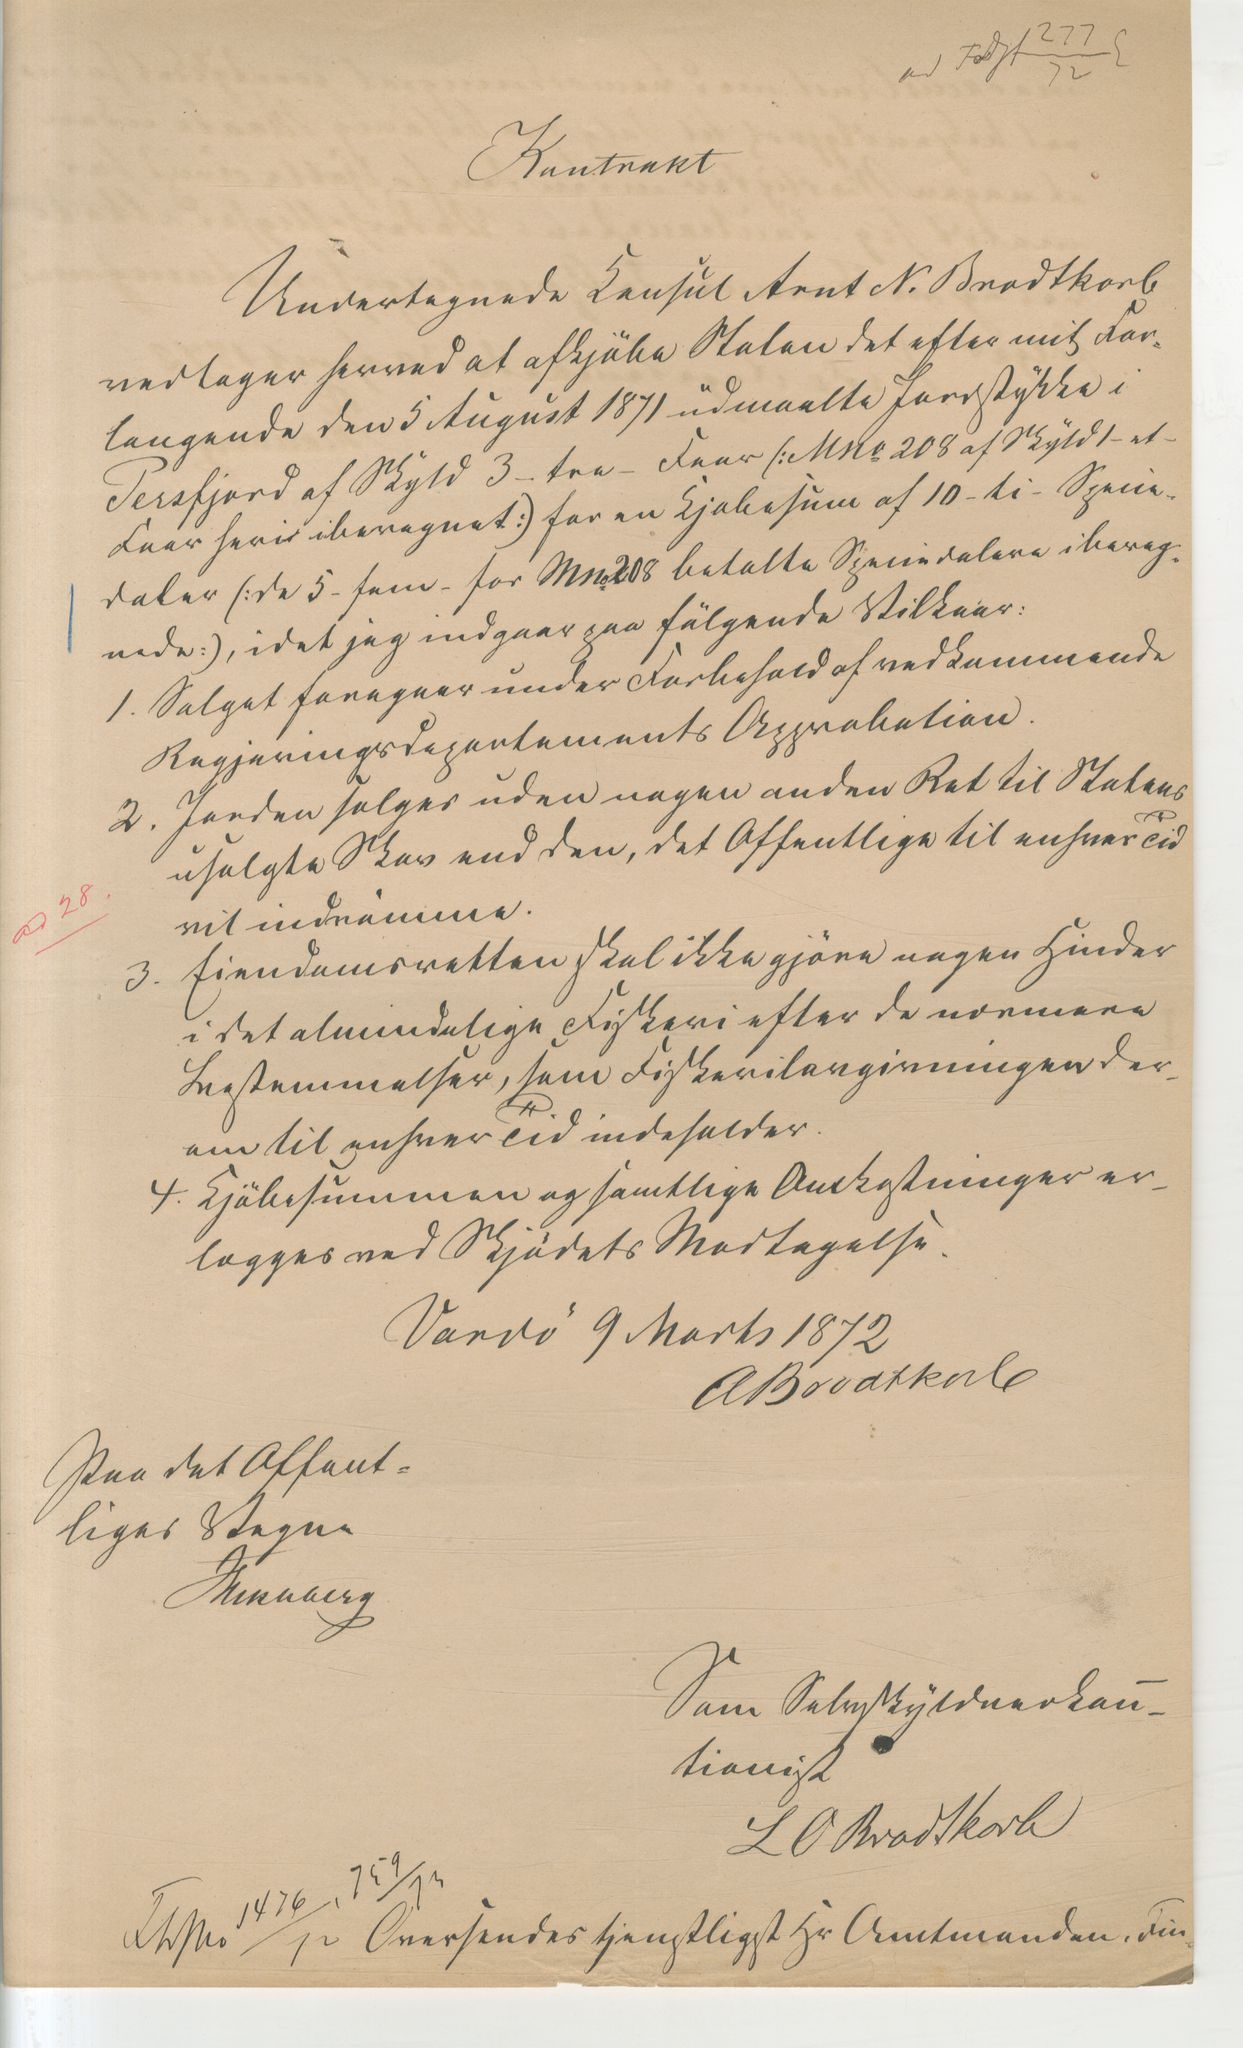 277
72
Kontrakt
Undertegnede Consul Arnt N. Brodtkorb
vedtager herved at afkjöbe Staten det efter mit For-
langende den 5 August 1871 udmaalte Jordstykke i
Persfjord af Skyld 3 - tre - Faar (: MNo 208 af Skyld 1 - et -
Faar heri iberegnet :) for en Kjöbesum af 10 - ti - Specie-
daler (: de 5 - fem - for MNo 208 betalte Speciedalere ibereg-
nede :), idet jeg indgaar paa fölgende Vilkaar:
1. Salget foregaar under Forbehold af vedkommende
Regjeringsdepartements Approbation.
2. Jorden sælges uden nogen anden Ret til Statens
usolgte Skov end den, det Offentlige til enhver Tid
vil indrömme.
ad 28.
3. Eiendomsretten skal ikke gjöre nogen Hinder
i det almindelige Fiskeri efter de nærmere
Bestemmelser, som Fiskerilovgivningen der-
om til enhver Tid indeholder.
4. Kjöbesummen og samtlige Omkostninger er-
lægges ved Skjödets Modtagelse.
Vardö 9 Marts 1872
ABrodtkorb
Paa det Offent-
liges Vegne
Som Selvskyldnerkau-
tionist
L O Brodtkorb
1476 759
72 Oversendes tjenstligst Hr Amtmanden i Fin-